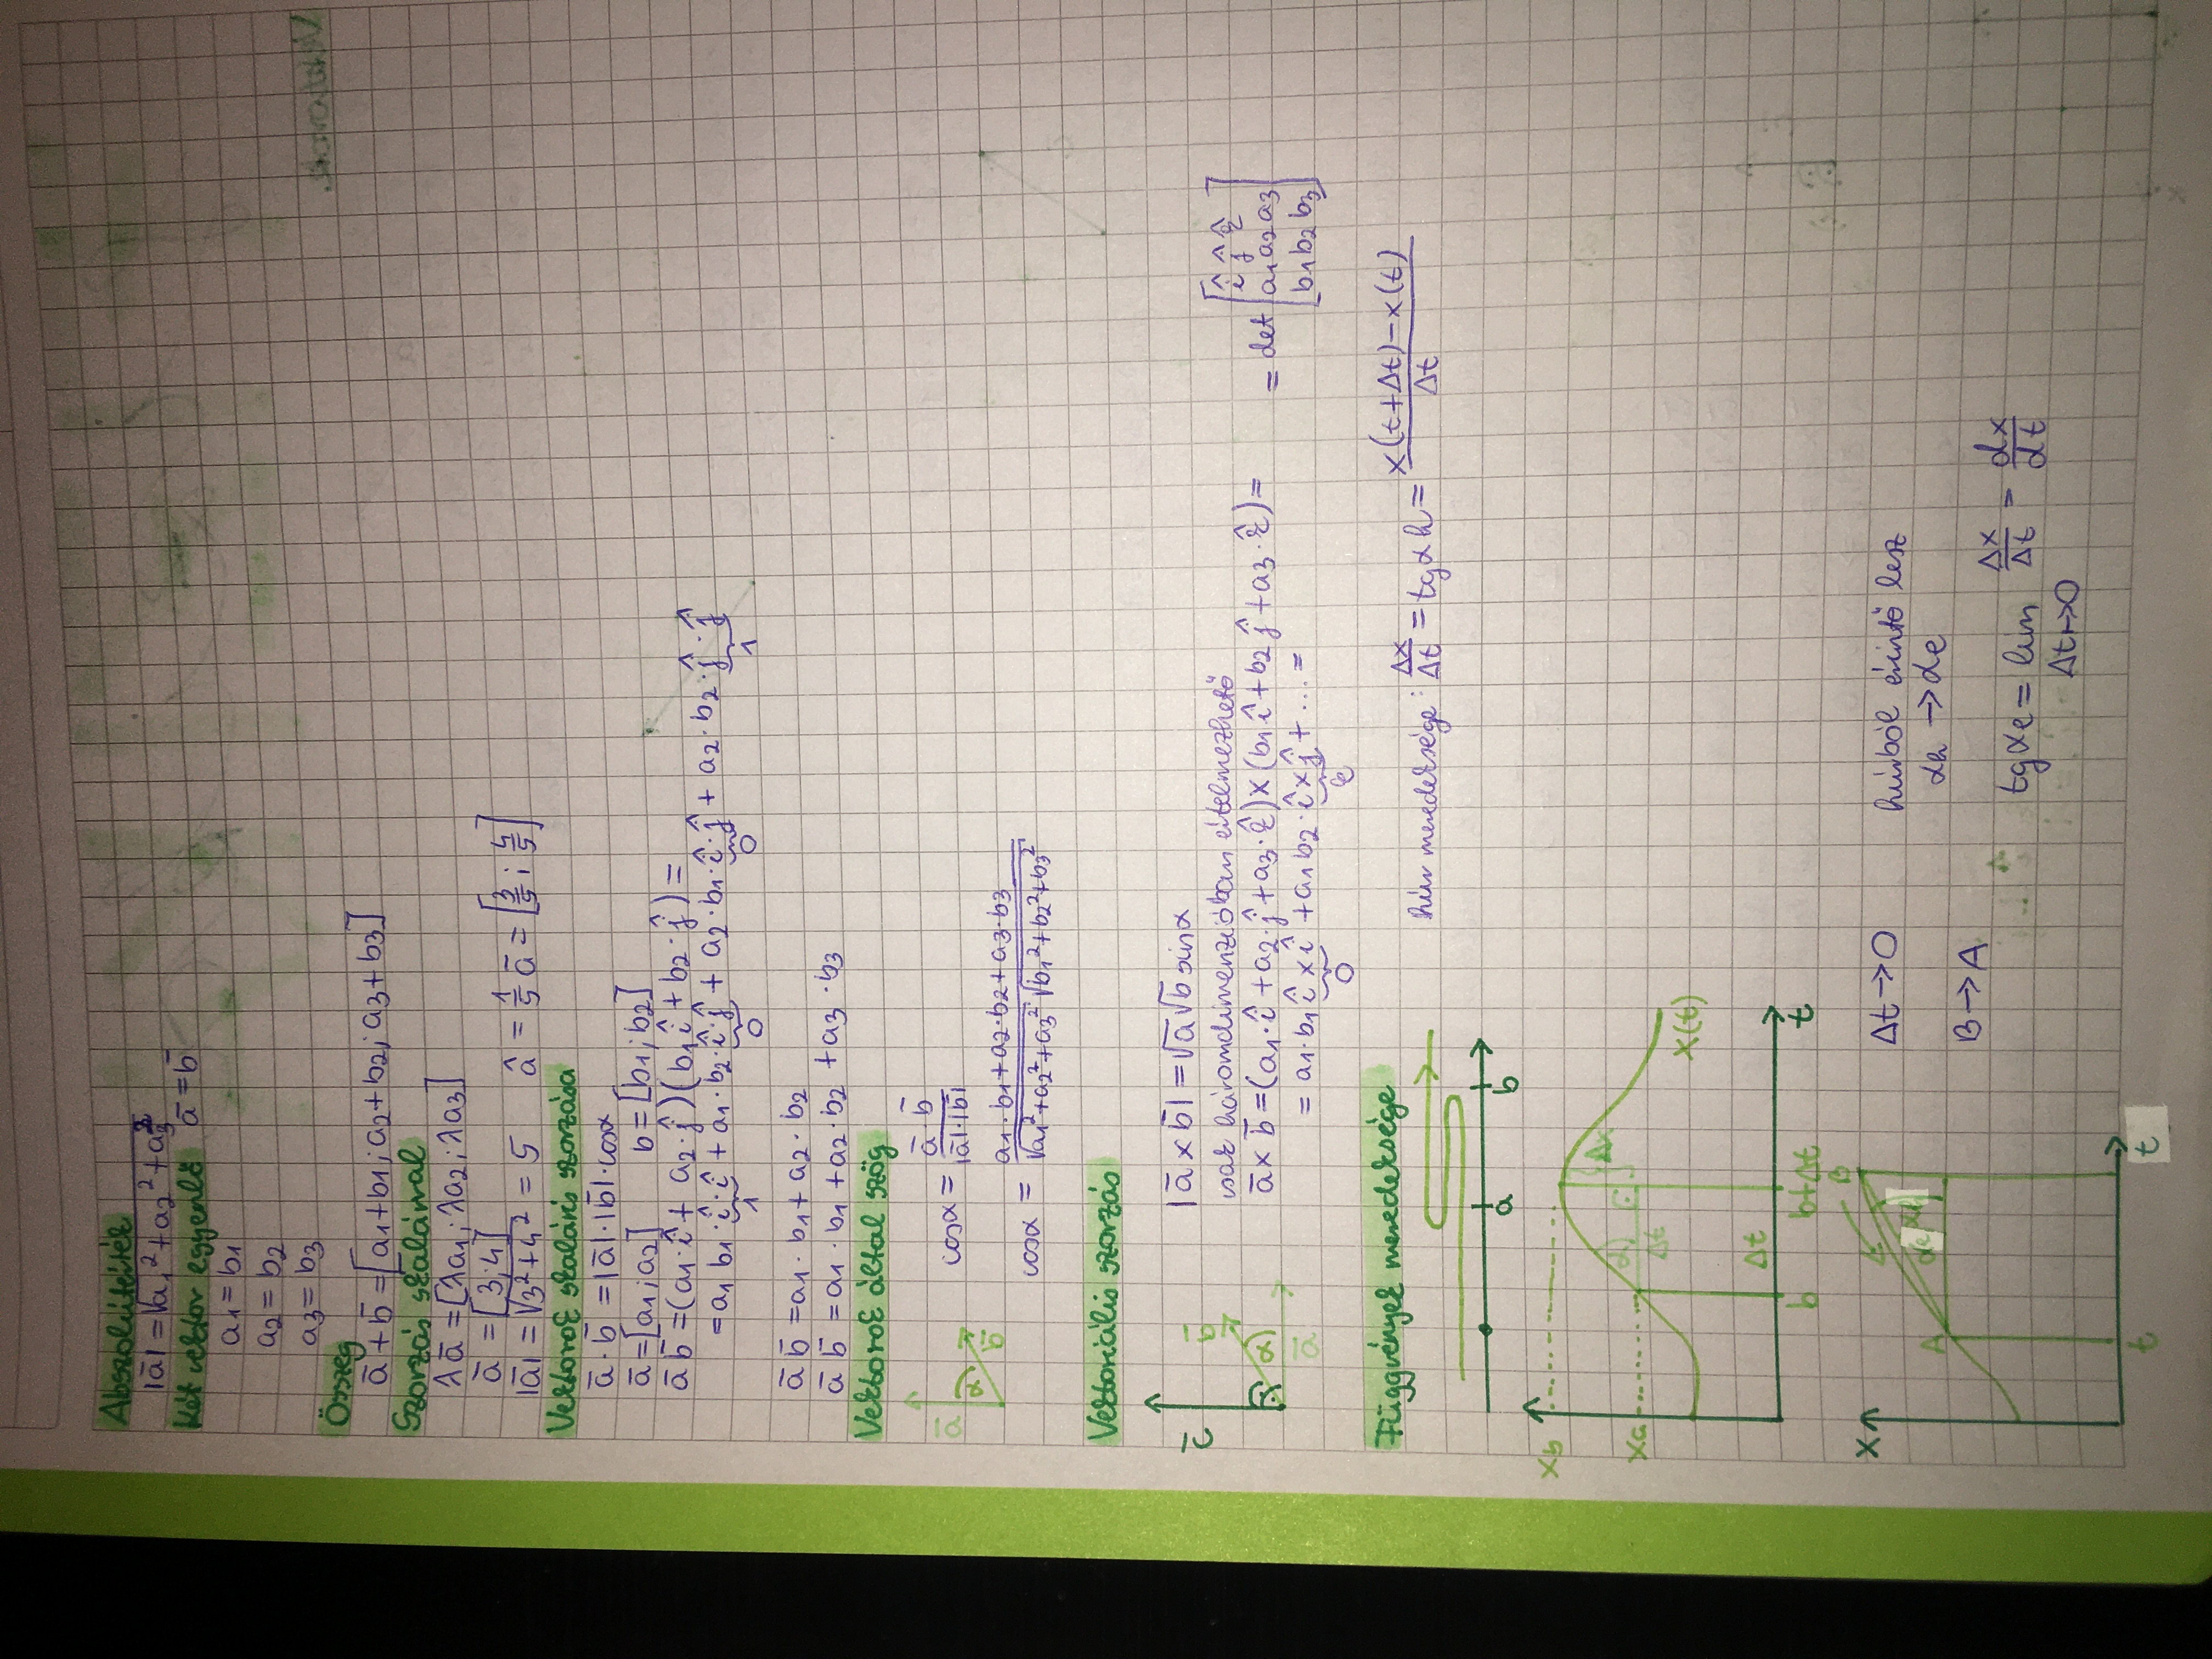 Abszolútérték
|ā| = √a₁² + a₂² + a₃²
Két vektor egyenlő ā = b̄
a₁ = b₁
a₂ = b₂
a₃ = b₃
Összeg
ā + b̄ = [a₁+b₁; a₂+b₂; a₃+b₃]
Szorzás skalárral
λā = [λa₁; λa₂; λa₃]
ā = [3; 4]
|ā| = √3²+4² = 5 â = 1/5 ā = [3/5; 4/5]
Vektorok skaláris szorzása
ā · b̄ = |ā| · |b̄| · cosα
ā = [a₁; a₂] b = [b₁; b₂]
ā b̄ = (a₁·î + a₂·ĵ)(b₁î + b₂·ĵ) =
= a₁ b₁ · î·î + a₁·b₂·î·ĵ + a₂·b₁·î·ĵ + a₂·b₂·ĵ·ĵ
1 0 0 1
ā b̄ = a₁ · b₁ + a₂ · b₂
ā b̄ = a₁ · b₁ + a₂ · b₂ + a₃ · b₃
Vektorok által szög
ā α b̄
cosα = ā b̄ / |ā|·|b̄|
cosα = a₁·b₁+a₂·b₂+a₃·b₃ / √a₁²+a₂²+a₃² √b₁²+b₂²+b₃²
Vektoriális szorzás
c̄ b̄ α ā
|ā × b̄| = √ā √b̄ sinα
csak háromdimenzióban értelmezhető
ā × b̄ = (a₁·î + a₂·ĵ + a₃·k̂) × (b₁î + b₂ĵ + a₃·k̂) =
= a₁·b₁ î × î + a₁b₂ · î × ĵ + ... =
0 k
= det [î ĵ k̂
a₁ a₂ a₃
b₁ b₂ b₃]
Függvények meredeksége
húr meredeksége: Δx/Δt = tgαh = x(t+Δt)−x(t) / Δt
a b
xb
Δx
α
xa
Δt
x(t)
Δt
b b+Δt t
x B
A αe αh
t t
Δt → 0 húrból érintő lesz
αh → αe
B → A
tgαe = lim Δx/Δt = dx/dt
Δt→0